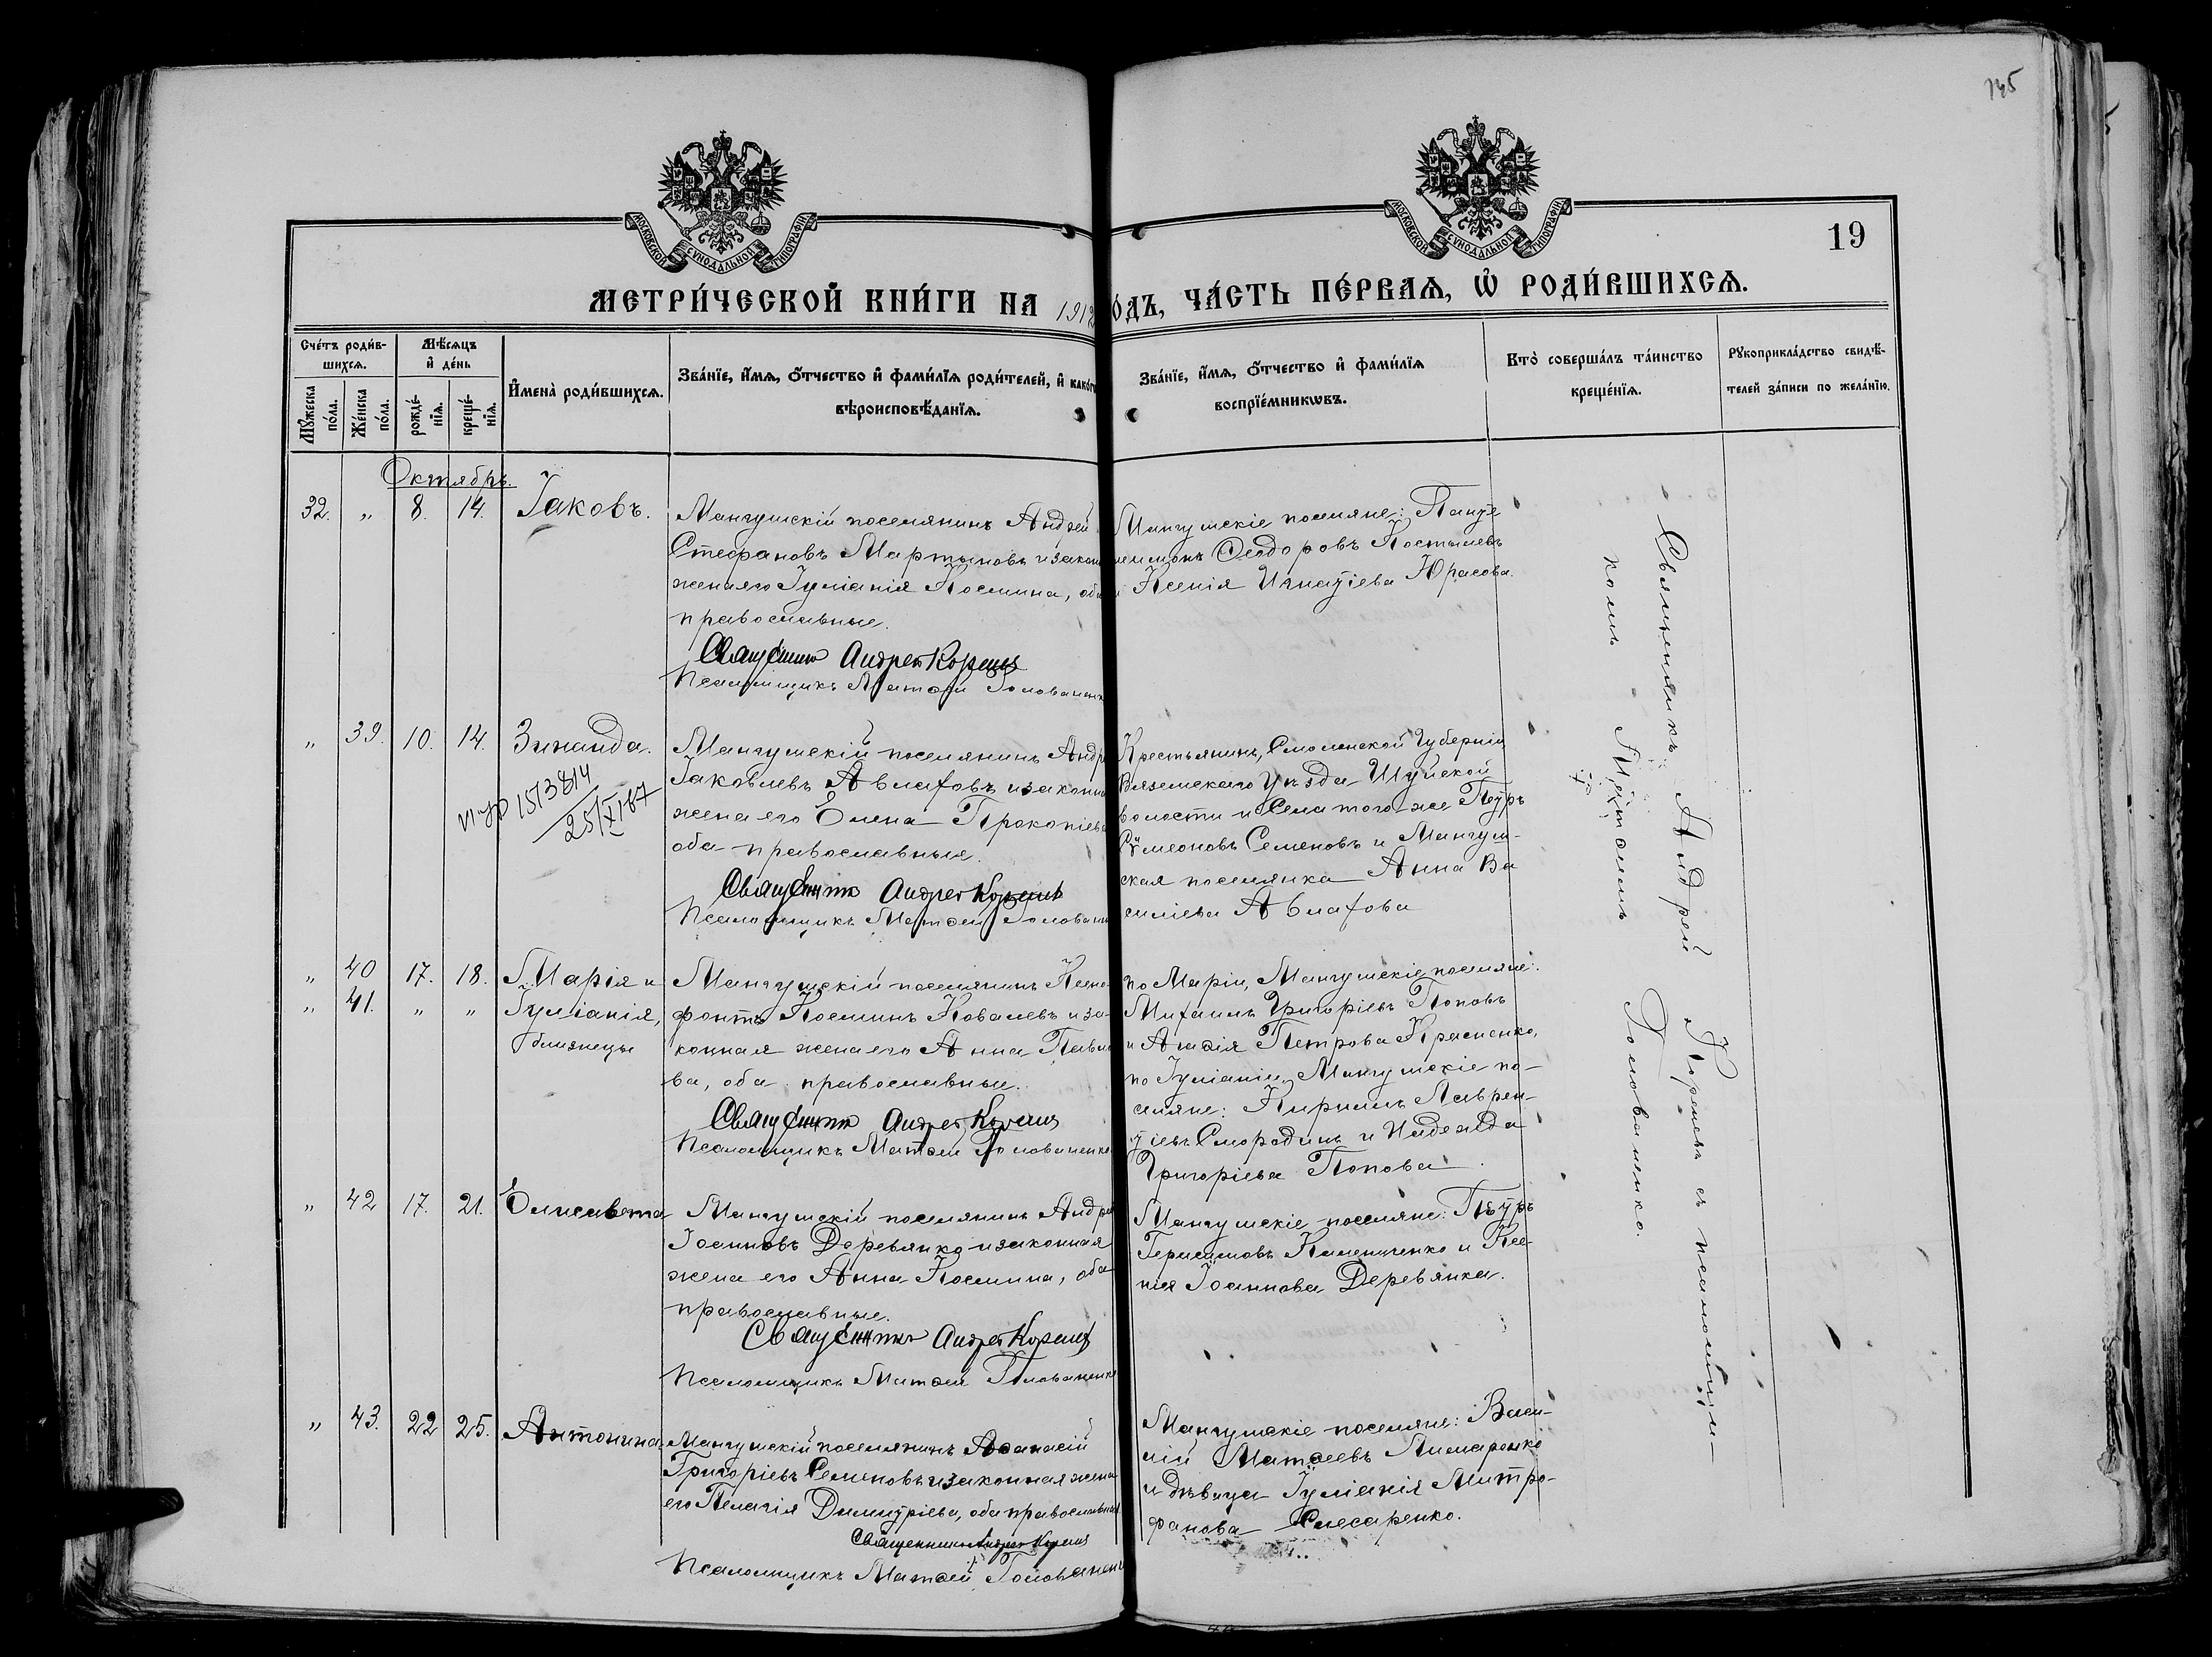 145
МОСКОВСКОЙ СѴНОДАЛЬНОЙ ТИПОГРАФІИ
МОСКОВСКОЙ СѴНОДАЛЬНОЙ ТИПОГРАФІИ
19
МЕТРИ́ЧЕСКОЙ КНИ́ГИ НА 1912
ОДЪ, ЧА́СТЬ ПЕ́РВАѦ, Ѡ҆ РОДИ́ВШИХСѦ.
Сче́тъ роди́в-
шихсѧ.
Мꙋ́жеска по́ла.
Же́нска по́ла.
Мѣ́сѧцъ
и҆ де́нь
рожде́-
нїѧ.
креще́-
нїѧ.
И҆мена̀ роди́вшихсѧ.
Зва́нїе, и҆́мѧ, ѻ҆́тчество и҆ фами́лїѧ роди́телей, и҆ како́гѡ
вѣроисповѣ́данїѧ.
Зва́нїе, и҆́мѧ, ѻ҆́тчество и҆ фами́лїѧ
воспрїе́мникѡвъ.
Кто̀ соверша́лъ та́инство
креще́нїѧ.
Рꙋкоприкла́дство свидѣ́-
телей за́писи по жела́нїю.
Октябрь.
32. „ 8. 14. Іаковъ.
Мангушскій поселянинъ Андрей
Стефановъ Мартыновъ и закон
жена его Іуліанія Косьмина, оба
православные.
Священник Андрей Корецв
Псаломщикъ Матѳей Голованенк
Мангушскіе поселяне: Панте
леимонъ Ѳеодоровъ Костылевъ
и Ксенія Игнатіева Юрасова.
„ 39. 10. 14. Зинаида.
VI-ЖО 1513814
25/XI 67
Мангушскій поселянинъ Андр
Іаковлевъ Авлаховъ и законна
жена его Елена Прокопіева
оба православные.
Священник Андрей Корецв
Псаломщикъ Матѳей Голованен
Крестьянинъ, Смоленской Губерніи
Вяземскаго Уѣзда Шуйской
волости и Села того-же Петръ
Сѵмеоновъ Семеновъ и Мангуш-
ская поселянка Анна Ва
силіева Авлахова
„ 40 17. 18. Марія и
„ 41. „ „ Іуліанія,
близнецы
Мангушскій поселянинъ Ксено
фонтъ Косьминъ Ковалевъ и за-
конная жена его Анна Павло
ва, оба православные.
Священник Андрей Корецв
Псаломщикъ Матѳей Голованенко
по Маріи, Мангушскіе поселяне:
Михаилъ Григоріевъ Поповъ
и Петрова Красненко,
по Іуліаніи, Мангушскіе по-
селяне: Кириллъ Лаврен-
тіевъ Смородинъ и Надежда
Григоріева Попова.
„ 42 17. 21. Елисавета
Мангушскій поселянинъ Андрей
Іоанновъ Деревянко и законная
жена его Анна Косьмина, оба
православные.
Священникъ Андрей Корецв
Псаломщикъ Матѳей Голованенко
Мангушскіе поселяне: Петръ
Герасимовъ и Ксе-
нія Іоаннова Деревянка.
„ 43. 22 25. Антонина
Мангушскій поселянинъ Аѳанасій
Григоріевъ Семеновъ и законная жена
его Пелагія Димитріева, оба православные
Священникъ Андрей Корецв
Псаломщикъ Матѳей Голованен
Мангушскіе поселяне: Васи-
лій Матѳеевъ
и дѣвица Іуліанія Митро-
фанова Слесаренко.
Священникъ Андрей Корецв съ псаломщи-
комъ Матѳеемъ Голованенко.